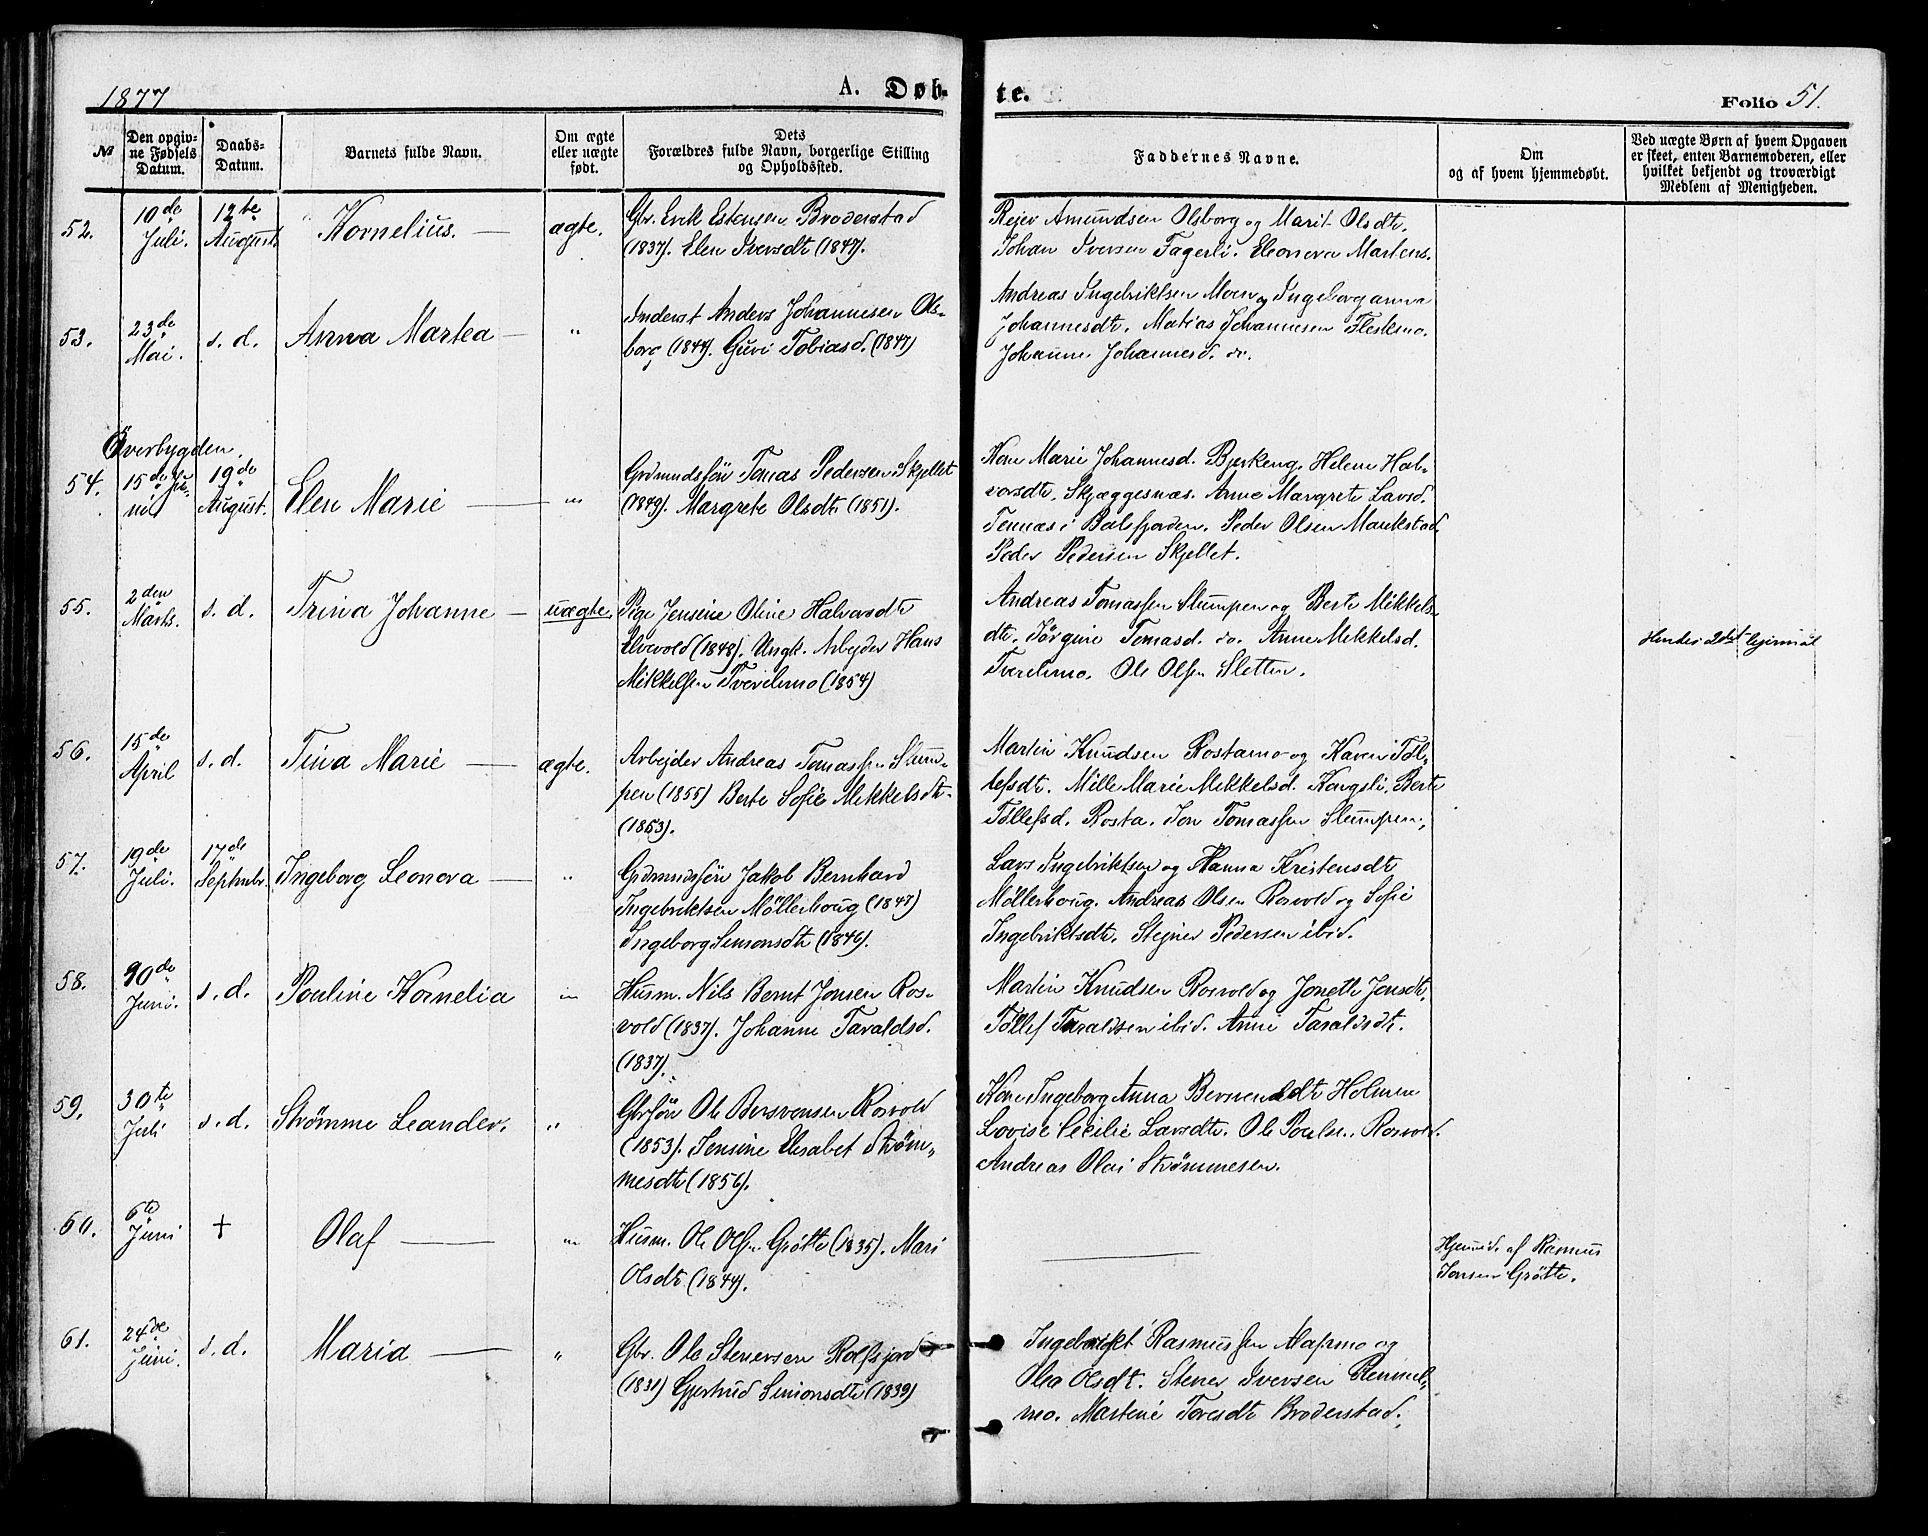 1877
A. Døb-
te.
Folio 51.
№
Den opgiv-
ne Fødsels
Datum.
Daabs-
Datum.
Barnets fulde Navn.
Om ægte
eller uægte
født.
Dets
Forældres fulde Navn, borgerlige Stilling
og Opholdssted.
Faddernes Navne.
Om
og af hvem hjemmedøbt.
Ved uægte Børn af hvem Opgaven
er skeet, enten Barnemoderen, eller
hvilket bekjendt og troværdigt
Medlem af Menigheden.
52.
10de
Juli.
12te
August
Kornelius. —
ægte.
Gbr. Erik Estensen Broderstad
(1837). Elen Iversdt (1847).
Reier Amundsen Olsborg og Marit Olsdt.
Johan Iversen Fagerli. Eleonora Martens.
53.
23de
Mai.
s. d.
Anna Martea —
"
Inderst Anders Johannesen Ols-
borg (1844). Guri Tobiasd. (1847)
Andreas Ingebriktsen Moen og Ingeborganna
Johannesdt. Matias Johannesen Fleskmo.
Johanne Johannesd. do.
Överbygden.
54.
15de Ju-
ni
19de
August.
Elen Marie —
"
Grdmandsfön Tomas Pedersen Skjellet
(1849). Margrete Olsdt (1851).
Kone Marie Johannesd. Bjerkeng. Helene Hal-
vorsdt. Skjæggesnæs. Anne Margrete Larsd.
Tennæs i Balsfjorden. Peder Olsen Maukstad.
Peder Pedersen Skjellet.
55.
2den
Marts.
s. d.
Trina Johanne —
uægte.
Pige Jensine Oline Halvorsdt
Elvevold (1848). Ungk. Arbejder Hans
Mikkelsen Tverelvmo (1854)
Andreas Tomassen Slumpen og Berte Mikkels-
dt. Jörgine Tomasd. do. Anne Mikkelsd.
Tverelvmo. Ole Olsen Sletten.
Hendes 2det lejermål
56.
15de
April
s. d.
Tina Marie —
ægte.
Arbejder Andreas Tomassen Slum-
pen (1855) Berte Sofie Mikkelsdt.
(1853).
Martin Knudsen Rostamo og Karen Töl-
lefsdt. Mille Marie Mikkelsd. Kongsli. Berte
Töllefsd. Rosta. Jon Tomassen Slumpen.
57.
19de
Juli.
17de
Septmbr.
Ingeborg Leonora —
"
Grdmndsfön Jakob Bernhard
Ingebriktsen Möllerhoug (1847)
Ingeborg Simonsdt (1846).
Lars Ingebriktsen og Hanna Kristensdt
Möllerhoug. Andreas Olsen Rosvold og Sofie
Ingebriktsdt. Stejner Pedersen ibid.
58.
20de
Juni.
s. d.
Pouline Kornelia
"
Husm. Nils Bernt Jonsen Ros-
vold (1837). Johanne Taraldsd.
(1837).
Martin Knudsen Rosvold og Jonette Jonsdt.
Töllef Taraldsen ibid. Anne Taraldsdt.
59.
30te
Juli
s. d.
Strömme Leander.
"
Gbrfön Ole Bersvensen Rosvold
(1853). Jensine Elisabet Ström-
mesdt (1856).
Kone Ingeborg Anna Bersvendsdt Holmen
Lovise Cecilie Larsdt. Ole Poulsen Rosvold.
Andreas Olai Strömmesen.
60.
6te
Juni
+
Olaf —
"
Husm. Ole Olsen Grötte (1835). Mari
Olsdt (1844).
—
Hjemmd. af Rasmus
Jonsen Grötte.
61.
24de
Juni.
s. d.
Maria —
"
Gbr. Ole Stenersen Rolfsjord
(1831) Gjertrud Simonsdt (1839)
Ingebrigt Rasmussen Alapmo og
Olea Olsdt. Stener Iversen Remmel-
mo. Martine Toresdt Broderstad.